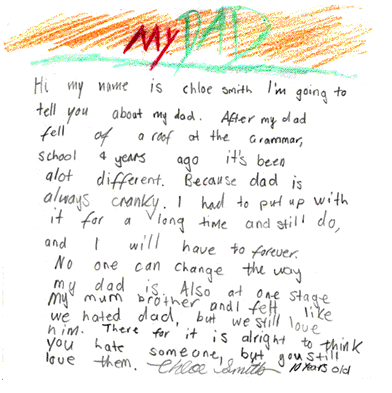 My DAD
Hi my name is chloe smith I'm going to
tell you about my dad. After my dad
fell of a roof at the Grammar,
school 4 years ago it's been
alot different. Because dad is
always cranky. I had to put up with
it for a long time and still do,
and I will have to forever.
No one can change the way
my dad is. Also at one stage
My mum brother and I felt like
we hated dad, but we still love
him. There for it is alright to think
you hate someone, but you still
love them. Chloe Smith 10 years old